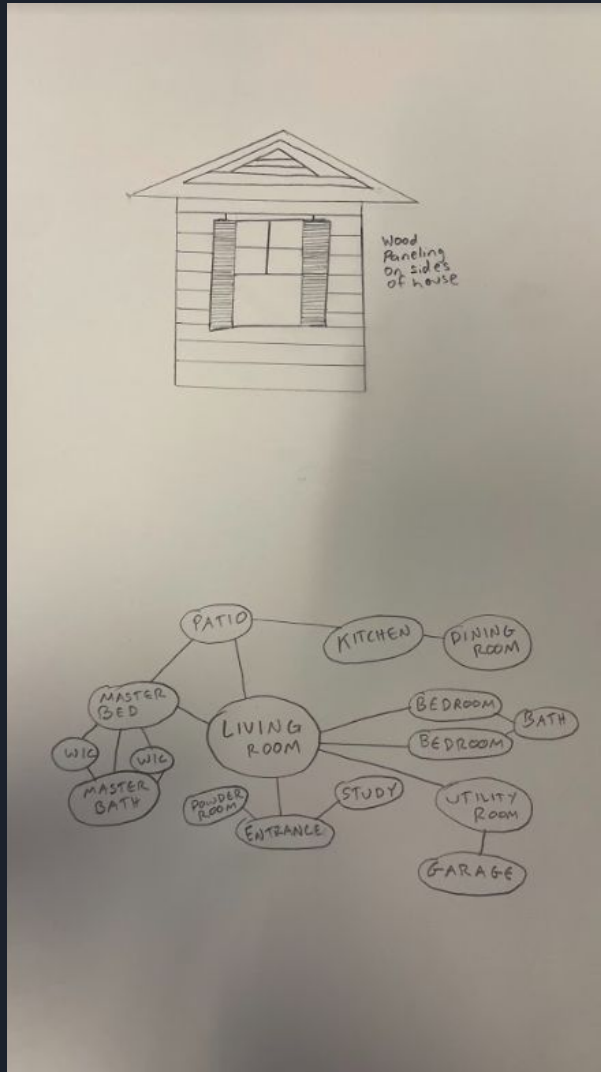 Wood
Paneling
on sides
of house
PATIO
KITCHEN
DINING
ROOM
MASTER
BED
LIVING
ROOM
BEDROOM
BATH
BEDROOM
WIC
WIC
MASTER
BATH
POWDER
ROOM
STUDY
ENTRANCE
UTILITY
ROOM
GARAGE